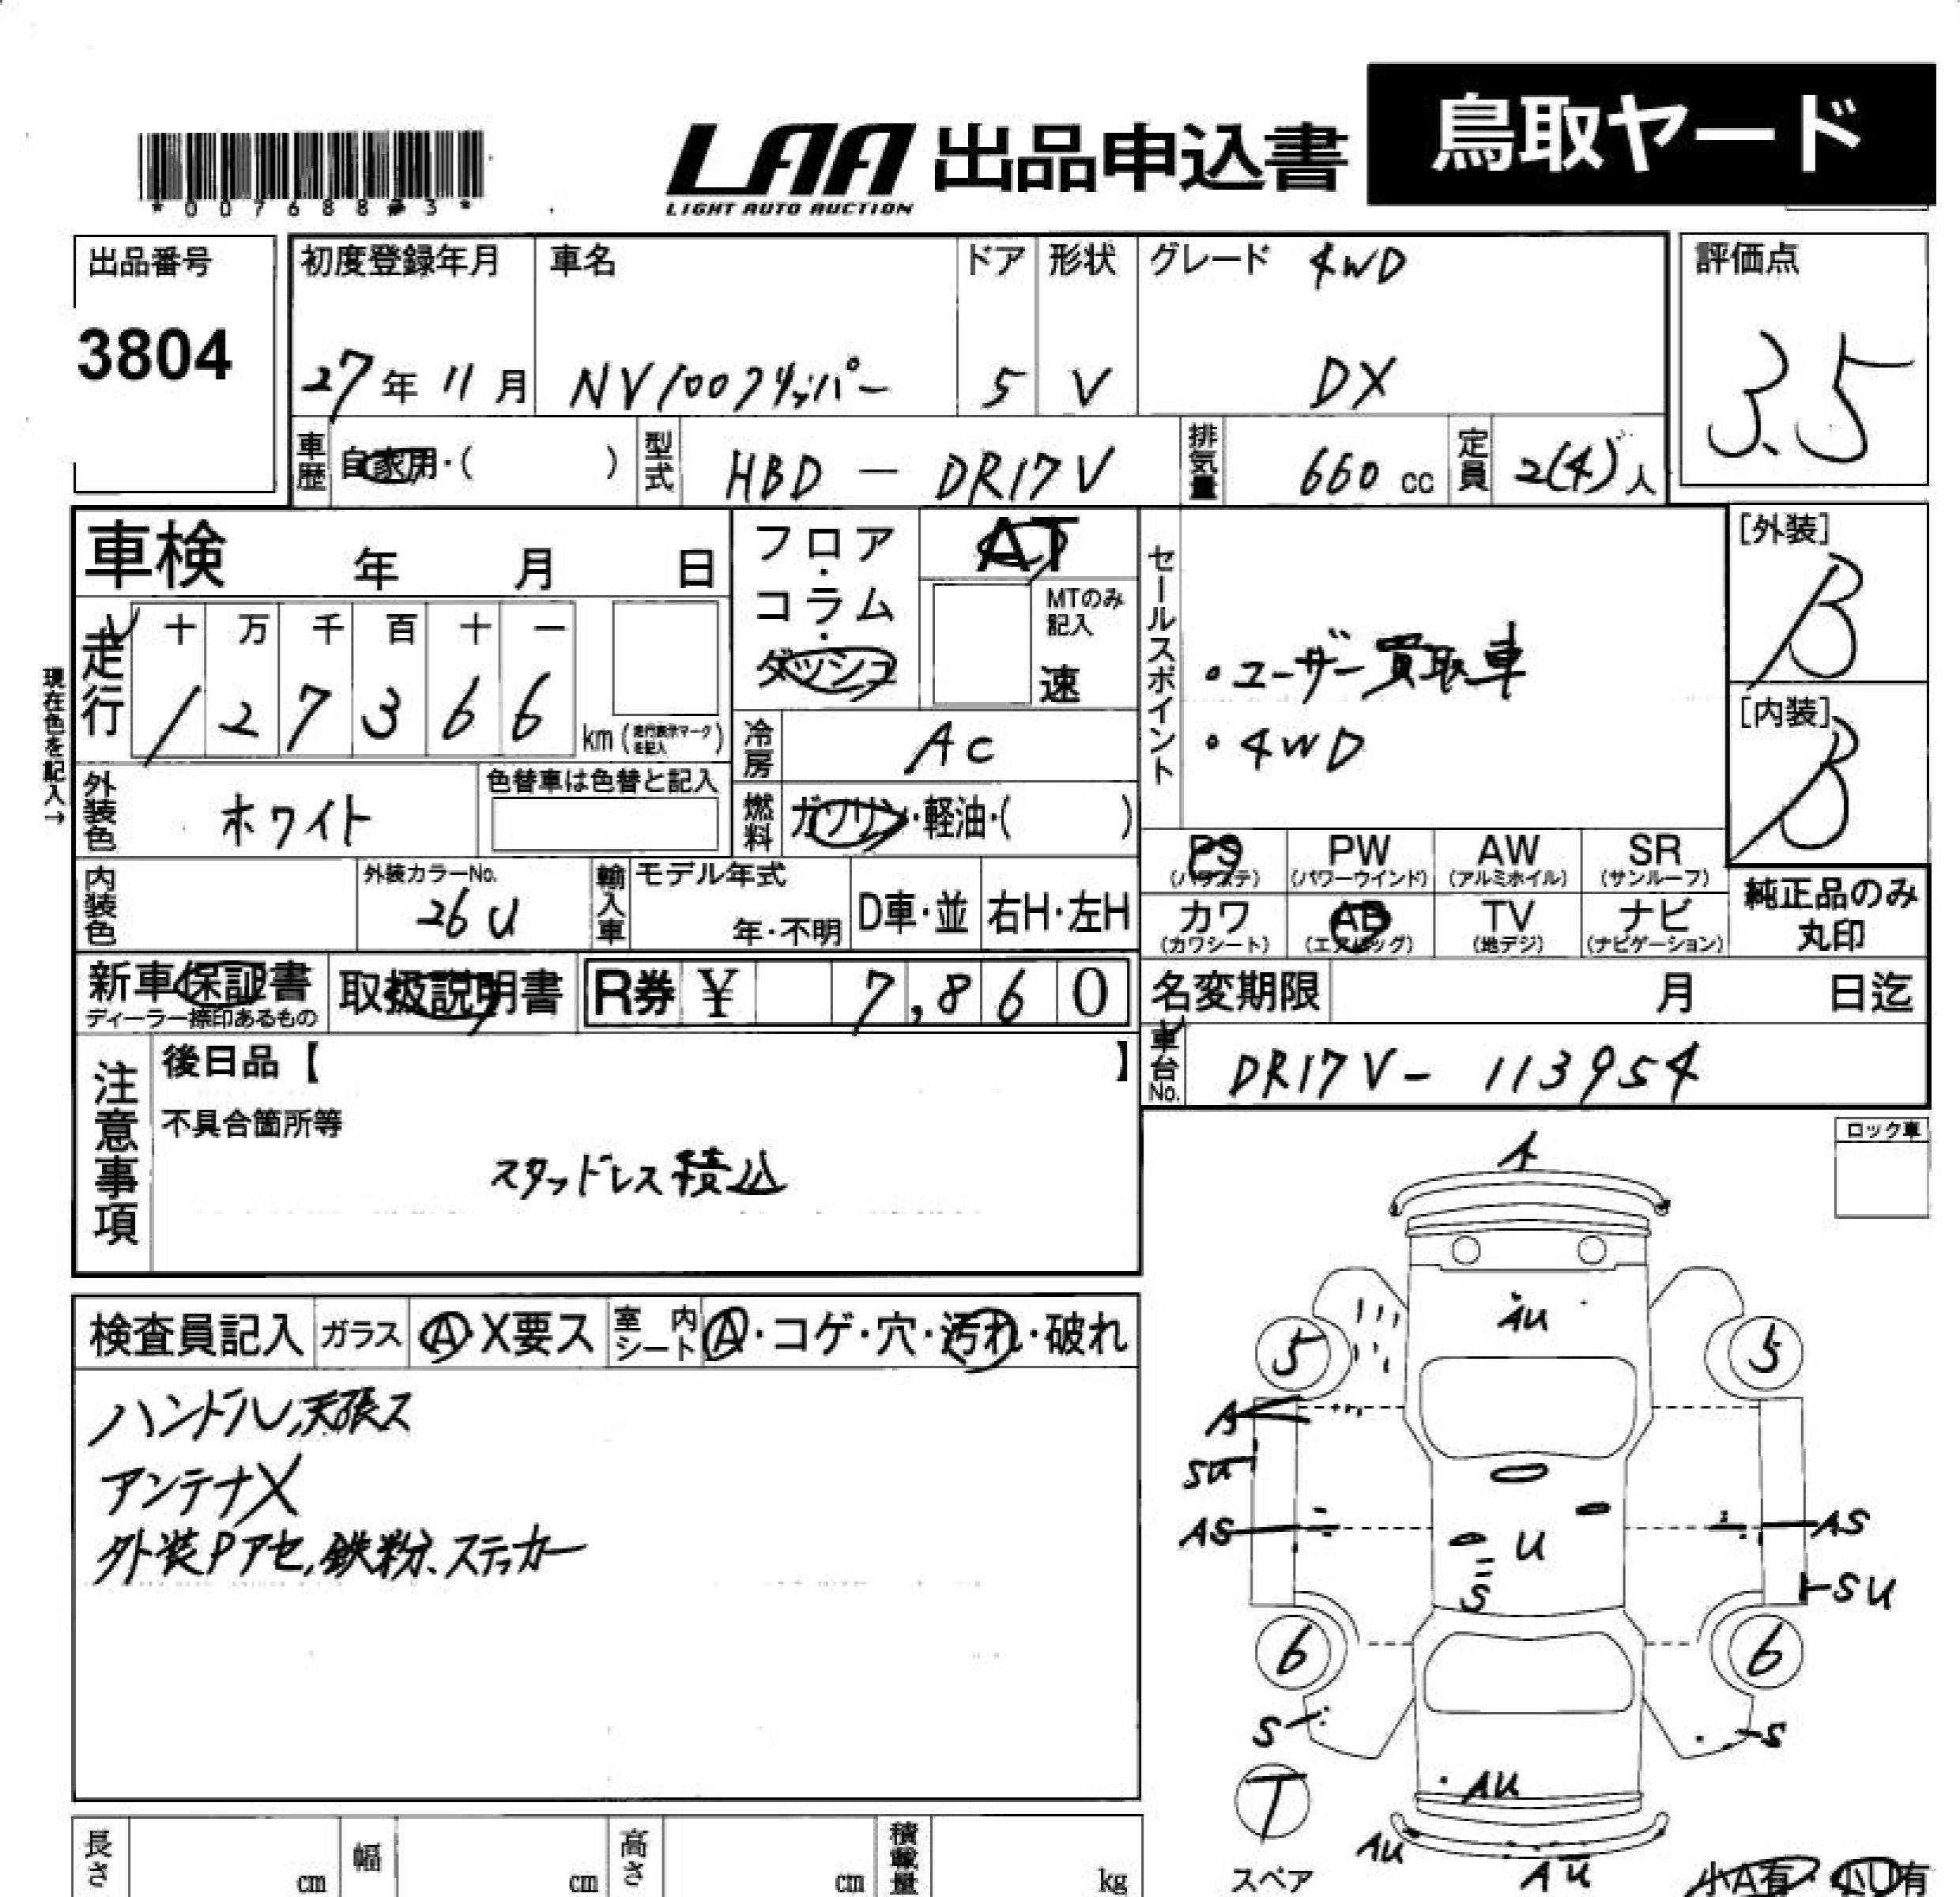 鳥取ヤード
LAA 出品申込書
LIGHT AUTO AUCTION
出品番号
3804
初度登録年月
27年11月
車名
NV100クリッパー
ドア
5
形状
V
グレード 4WD
DX
評価点
3.5
車歴 自家用・( )
型式 HBD - DR17V
排気量 660 cc
定員 2(4)人
車検 年 月 日
フロア・コラム・ダッシュ
AT
MTのみ記入
速
セールスポイント
・ユーザー買取車
・4WD
[外装]
B
[内装]
B
現在色を記入→
走行
十 万 千 百 十 一
1 2 7 3 6 6
km (走行表示マークを記入)
冷房 AC
外装色 ホワイト
色替車は色替と記入
燃料 ガソリン・軽油・( )
PS (パワステ)
PW (パワーウインド)
AW (アルミホイル)
SR (サンルーフ)
カワ (カワシート)
AB (エアバッグ)
TV (地デジ)
ナビ (ナビゲーション)
純正品のみ丸印
内装色
外装カラーNo.
26U
輸入車
モデル年式
年・不明
D車・並
右H・左H
新車保証書
ディーラー捺印あるもの
取扱説明書
R券 ¥ 7,860
名変期限 月 日迄
車台No. DR17V-113954
注意事項
後日品【 】
不具合箇所等
スタッドレス積込
ロック車
検査員記入 ガラス A・X要ス 室内シート A・コゲ・穴・汚れ・破れ
ハンドル、天張ス
アンテナX
外装Pアセ、鉄粉、ステッカー
A
AU
5
5
A
SU
AS
U
S
AS
SU
6
6
S
S
T
スペア
AU
AU
AU
小A有・小U有
長さ cm
幅 cm
高さ cm
積載量 kg